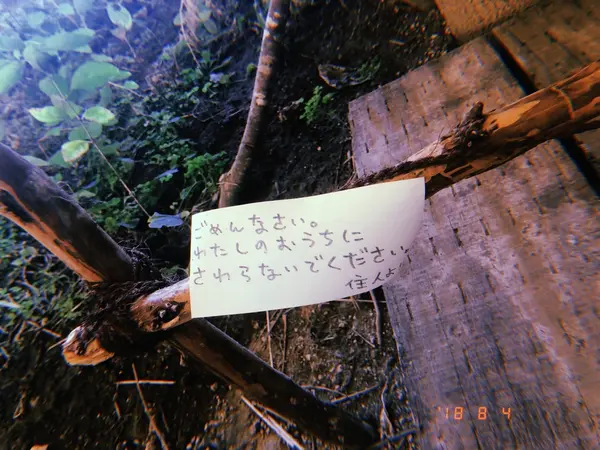 ごめんなさい。
わたしのおうちに
さわらないでください
住人よ
'18 8 4